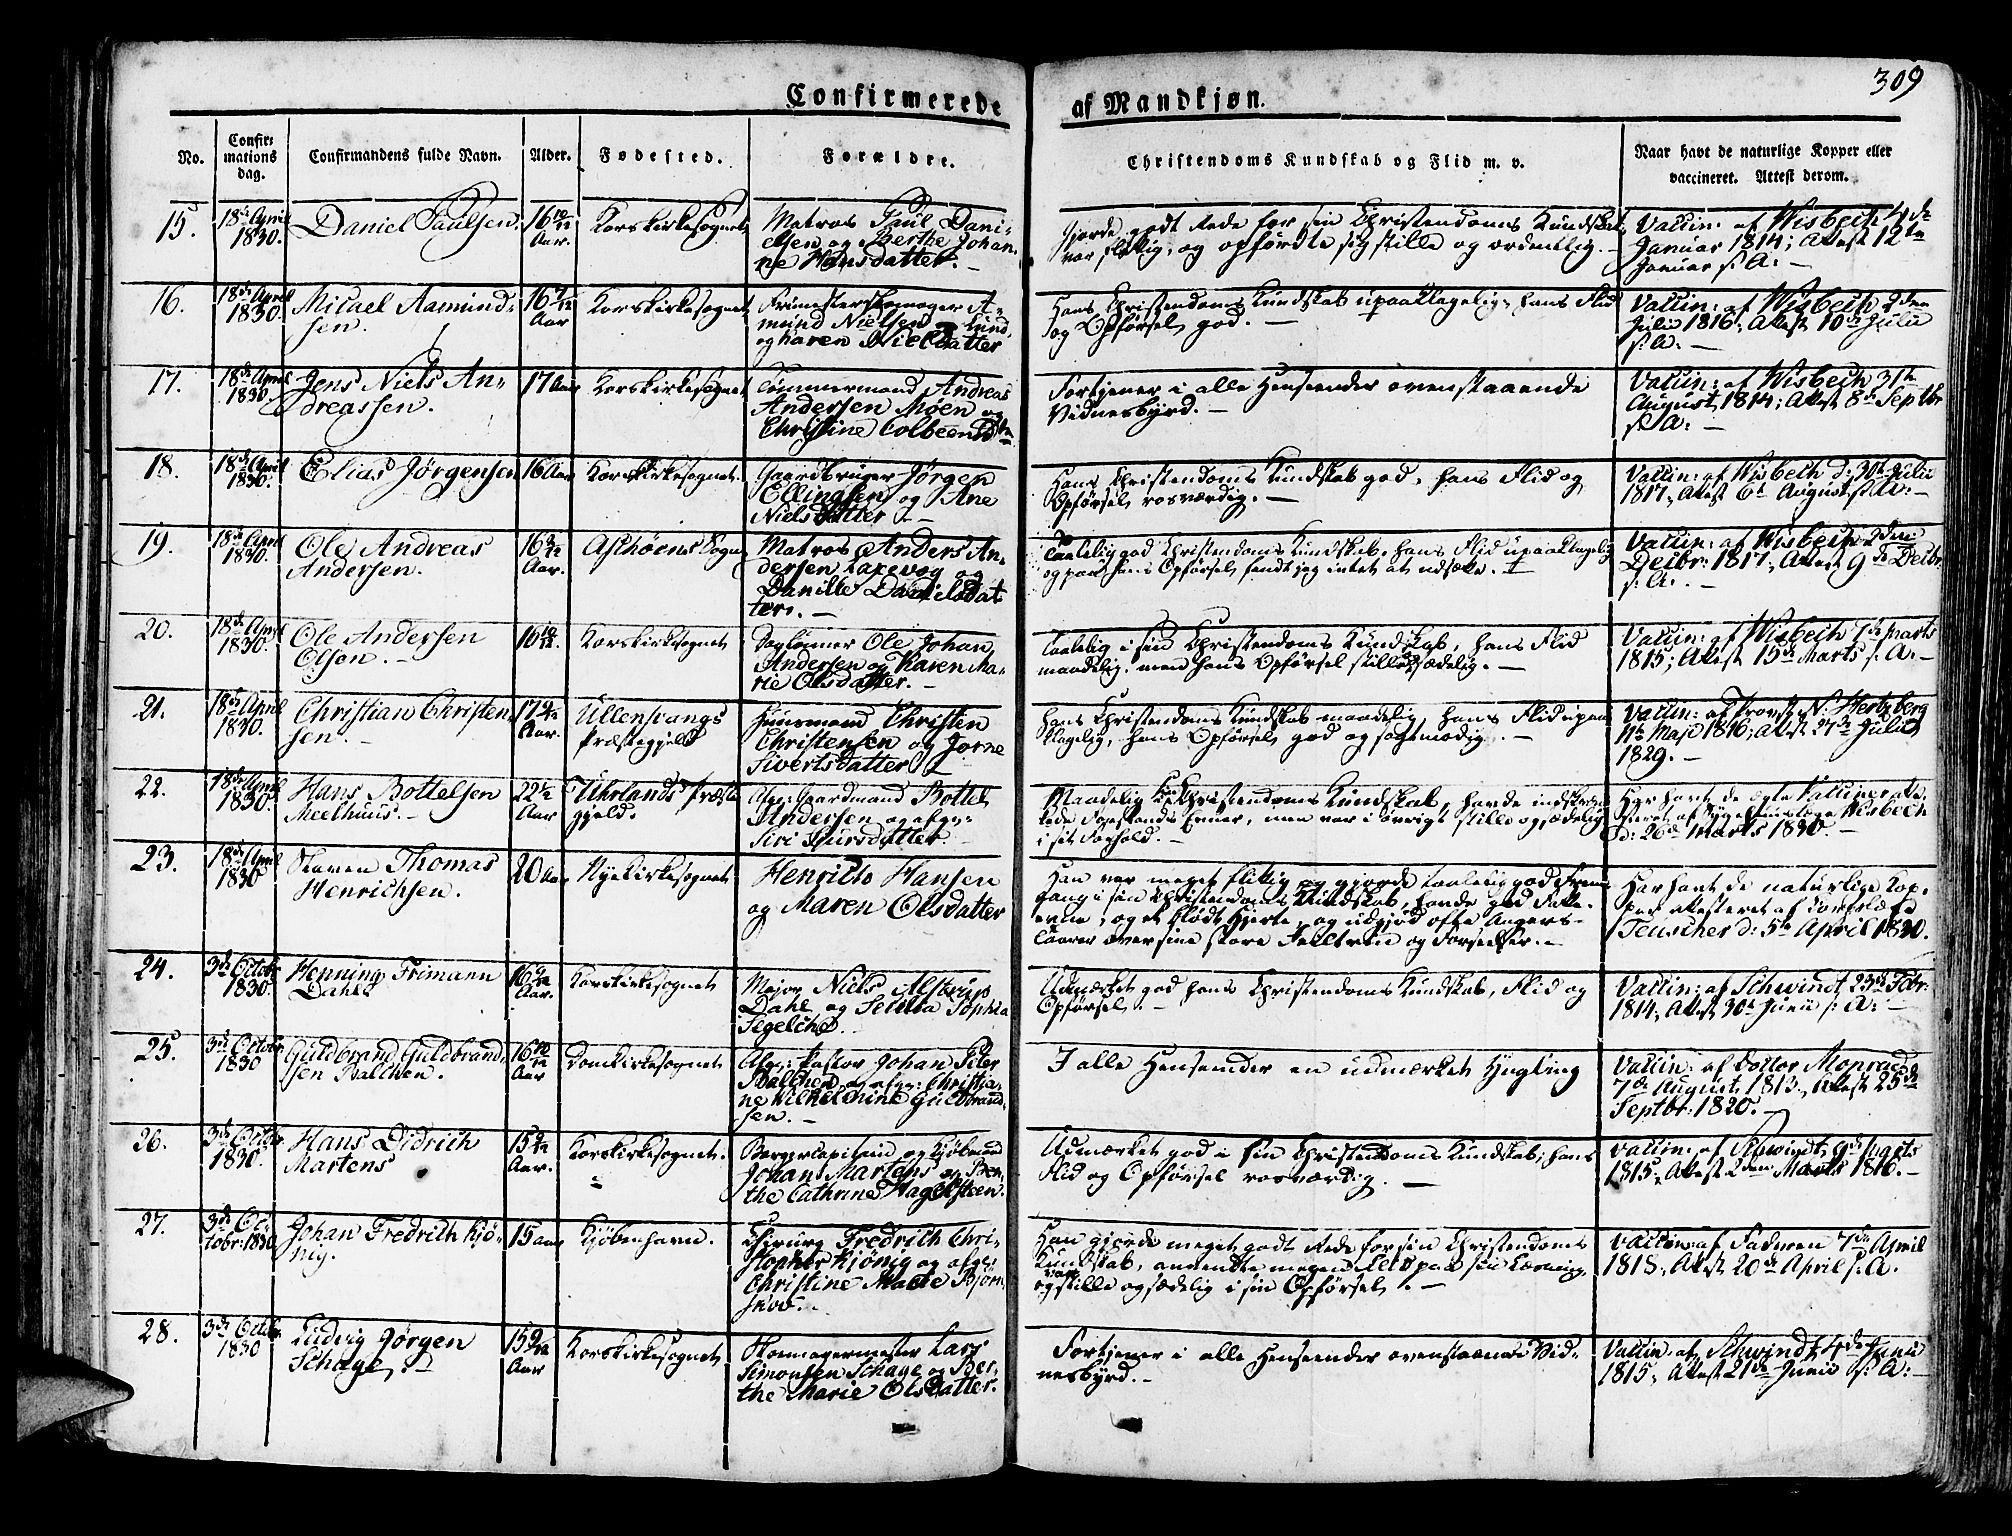 309
Confirmerede af Mandkjøn.
No. Confirmations dag. Confirmandens fulde Navn. Alder. Fødested. Forældre. Christendoms Kundskab og Flid m. v. Naar havt de naturlige Kopper eller vaccineret. Attest derom.
15. 18de April 1830. Daniel Paulsen. 16 10/12 Aar. Korskirkesognet
Matros Paul Dani-
elsen og Berthe Johan-
ne Hansdatter. —
Gjorde godt Rede for sin Christendoms Kundskab,
var flittig, og opførdte sig stille og ordentlig. —
Vaccin: af Wisbech 4de
Januar 1814; Attest 12te
Januar s: A: —
16. 18de April 1830. Micael Aamund-
sen. 16 7/12 Aar Korskirkesognet
Friimesterskomager A-
mund Nielsen Lund,
og Karen Nielsdatter
Hans Christendoms Kundskab upaaklagelig, hans Flid
og Opførsel god. —
Vaccin: af Wisbech 2den
Julii 1816, Attest 10de Julii
s: A. —
17. 18de April 1830. Jens Niels An-
dreassen. 17 Aar Korskirkesognet
Tømmermand Andreas
Andersen Møen og
Christine Colbeens
Fortjener i alle Henseender ovenstaaende
Vidnesbyrd. —
Vaccin: af Wisbech 31te
August 1814; Attest 8de Septbr
s: A: —
18. 18de April 1830. Elias Jørgensen 16 Aar Korskirkesognet.
Gaardbruger Jørgen
Ellingsen og Ane
Nielsdatter. —
Hans Christendoms Kundskab god, hans Flid og
Opførsel rosværdig. —
Vaccin: af Wisbech d: 30te Julii
1817, Attest 6te August s: A: —
19. 18de April 1830. Ole Andreas
Andersen. 16 Aar. Askøens Sogn
Matros Anders An-
dersen Laxevog og
Danille Danielsdat-
ter. —
Taalelig god Christendoms Kundskab, hans Flid upaaklagelig
og paa hans Opførsel fandt jeg intet at udsætte.
Vaccin: af Wisbech 2den
Decbr: 1817, Attest 9de Decbr
s: A: —
20. 18de April 1830. Ole Andersen
Olsen. — 16 10/12. Korskirkesognet
Daglønner Ole Johan
Andersen og Karen Ma-
rie Olsdatter. —
Taalelig i sin Christendoms Kundskab, hans Flid
maadelig, men hans Opførsel stille og sædelig. —
Vaccin: af Wisbech 7de Marts
1815; Attest 15de Marts s: A: —
21. 18de April 1830. Christian Christen-
sen. — 17 Aar. Ullensvangs
Præstegjeld
Huusmand Christen
Christensen og Jorne
Sivertsdatter
Hans Christendoms Kundskab maadelig, hans Flid upaa-
klagelig, hans Opførsel god og sagtmodig. —
Vaccin: af Provst N. Hertzberg
11te Maji 1816; Attest 27de Julii
1829. —
22. 18de April 1830. Hans Bottelsen
Meelhuus. — 22 1/2 Aar Uhrlands Præste-
gjeld.
Afg: Gaardmand Bottel
Andersen og afg:
Siri Siursdatter.
Maadelig Christendoms Kundskab, havde indskræn-
kede Forstands Evner, men var i øvrigt stille og sædelig
i sit Forhold. —
Har havt de ægte Vaccine atte-
steret af Sygehuuslæge Wisbech
d: 26de Marts 1830. —
23. 18de April 1830 Maren Thomas
Henrichsen. 20 Aar Nyekirkesognet
Henrich Hansen
og Maren Olsdatter
Han var meget flittig og gjorde taalelig god Frem-
gang i sin Christendoms Kundskab, havde god Fatte-
evne, og et blødt Hjerte, og udgjød ofte Angers-
Taarer over sine store Feiltrin og Forseelser. —
Har havt de naturlige Kop-
per attesteret af
Teuscher d: 5te April 1830.
24. 3de Octobr 1830. Henning Frimann
Dahl 16 Aar. Korskirkesognet
Major Niels Alstrup
Dahl og Sophia
Segelcke. —
Udmærket god hans Christendoms Kundskab, Flid og
Opførsel. —
Vaccin: af Schwindt 23de Febr:
1814, Attest 30te Junii s: A: —
25. 3de Octobr 1830 Guldbrand Guldbrand-
sen Balchen. 16 10/12 Aar Domkirkesognet
Afg: Pastor Johan Peter
Balchen og afg: Christia-
ne Wilhelmine Guldbrand-
sen. —
I alle Henseender en udmærket Yngling
Vaccin: af Doctor
7de August 1813, Attest 25de
Septbr: 1820.
26. 3de Octobr 1830. Hans Didrich
Martens 15 Aar. Korskirkesognet.
Borgercapitain og Kjøbmand
Johan Martens og Ben-
the Cathrine Hagelsteen.
Udmærket god i sin Christendoms Kundskab, hans
Flid og Opførsel rosværdig. —
Vaccin: af Schwindt 9de Marts
1815, Attest 2den Marts 1816. —
27. 3de Oc-
tobr: 1830 Johan Fredrich Kjø-
nig. 15 Aar Kjøbenhavn.
Chirurg Fredrich Chri-
stopher Kjønig og afg:
Christine Marie Bjørn-
skov. —
Han gjorde meget godt Rede for sin Christendoms
Kundskab, anvendte megen Flid paa sin Læsning,
og var stille og sædelig i sin Opførsel. —
Vaccin: af Fadmen 7de April
1818, Attest 20de April s: A.
28. 3de Octobr 1830 Ludvig Jørgen
Schage. 15 9/12 Aar Korskirkesognet
Skomagermester Lars
Simonsen Schage og Ber-
the Marie Olsdatter.
Fortjener i alle Henseender ovenstaaende Vid-
nesbyrd. —
Vaccin: af Schwindt 4de Junii
1815, Attest 21de Junii s: A: —